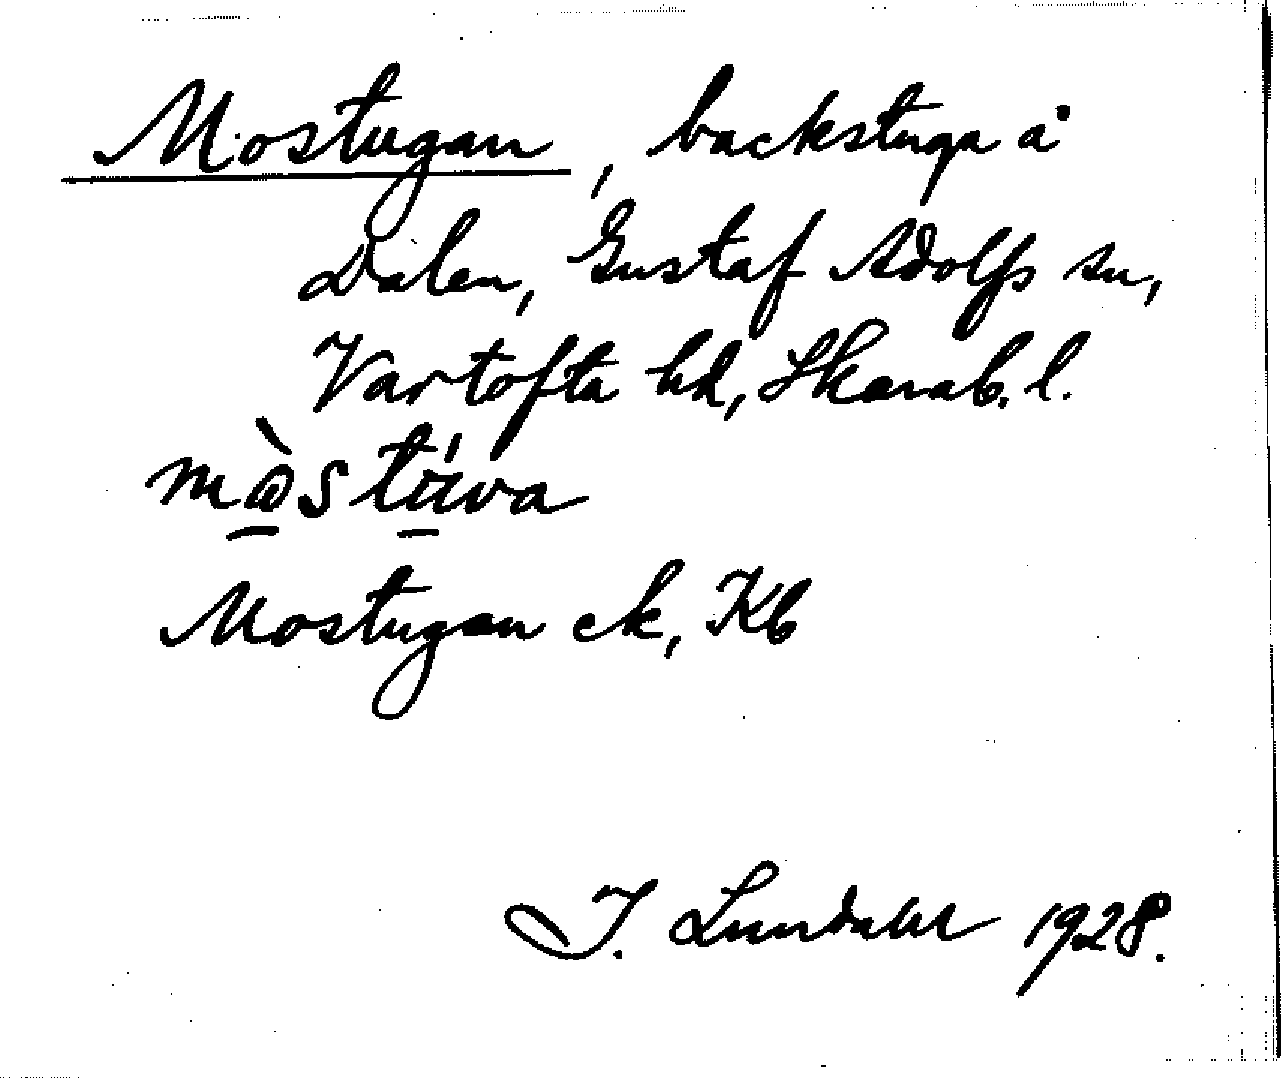 Mostugan, backstuga å
Dalen, Gustaf Adolfs sn,
Vartofta hd, Skarab. l.
Mostugan ek, Kb
I. Lundahl 1928.